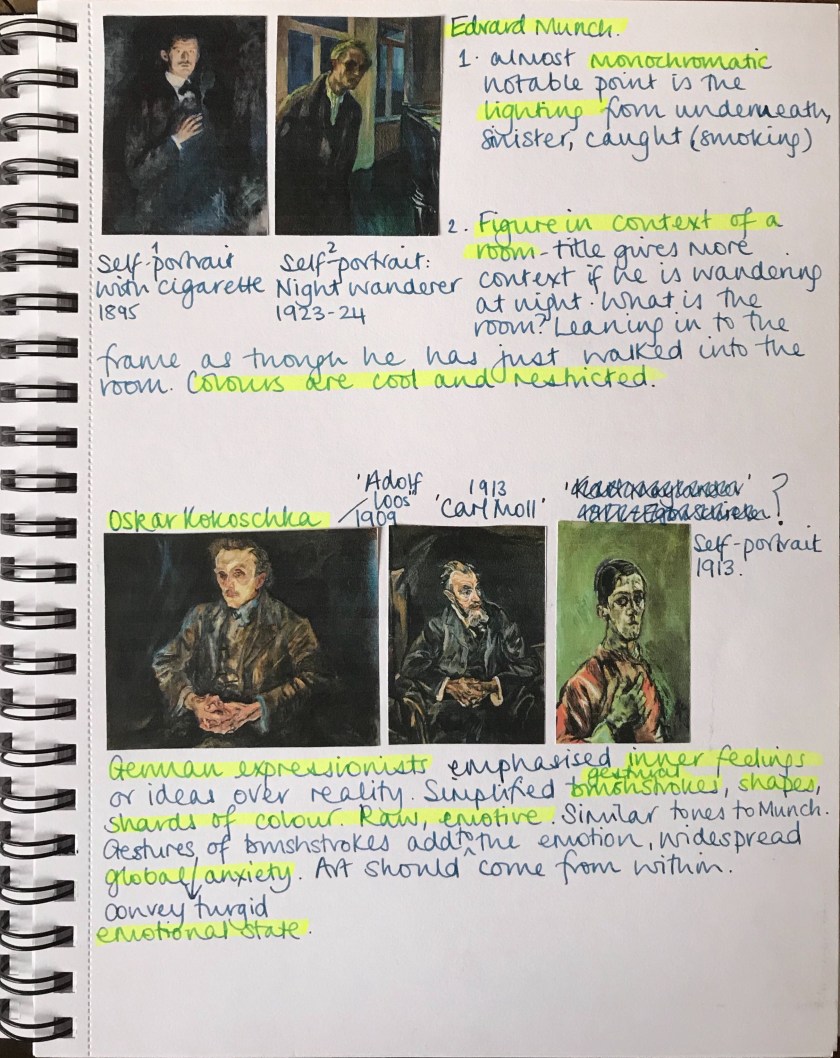 Edvard Munch.
1. almost monochromatic
notable point is the
lighting from underneath,
sinister, caught (smoking)
1
Self-portrait
with cigarette
1895
2
Self-portrait:
Night Wanderer
1923-24
2. Figure in context of a
room - title gives more
context if he is wandering
at night. What is the
room? Leaning in to the
frame as though he has just walked into the
room. Colours are cool and restricted.
Oskar Kokoschka
'Adolf
Loos'
1909
1913
'Carl Moll'
?
Self-portrait
1913.
German expressionists emphasised inner feelings
gestural
or ideas over reality. Simplified brushstrokes, shapes,
shards of colour. Raw, emotive. Similar tones to Munch.
Gestures of brushstrokes add to the emotion, widespread
global/anxiety. Art should come from within.
convey turgid
emotional state.